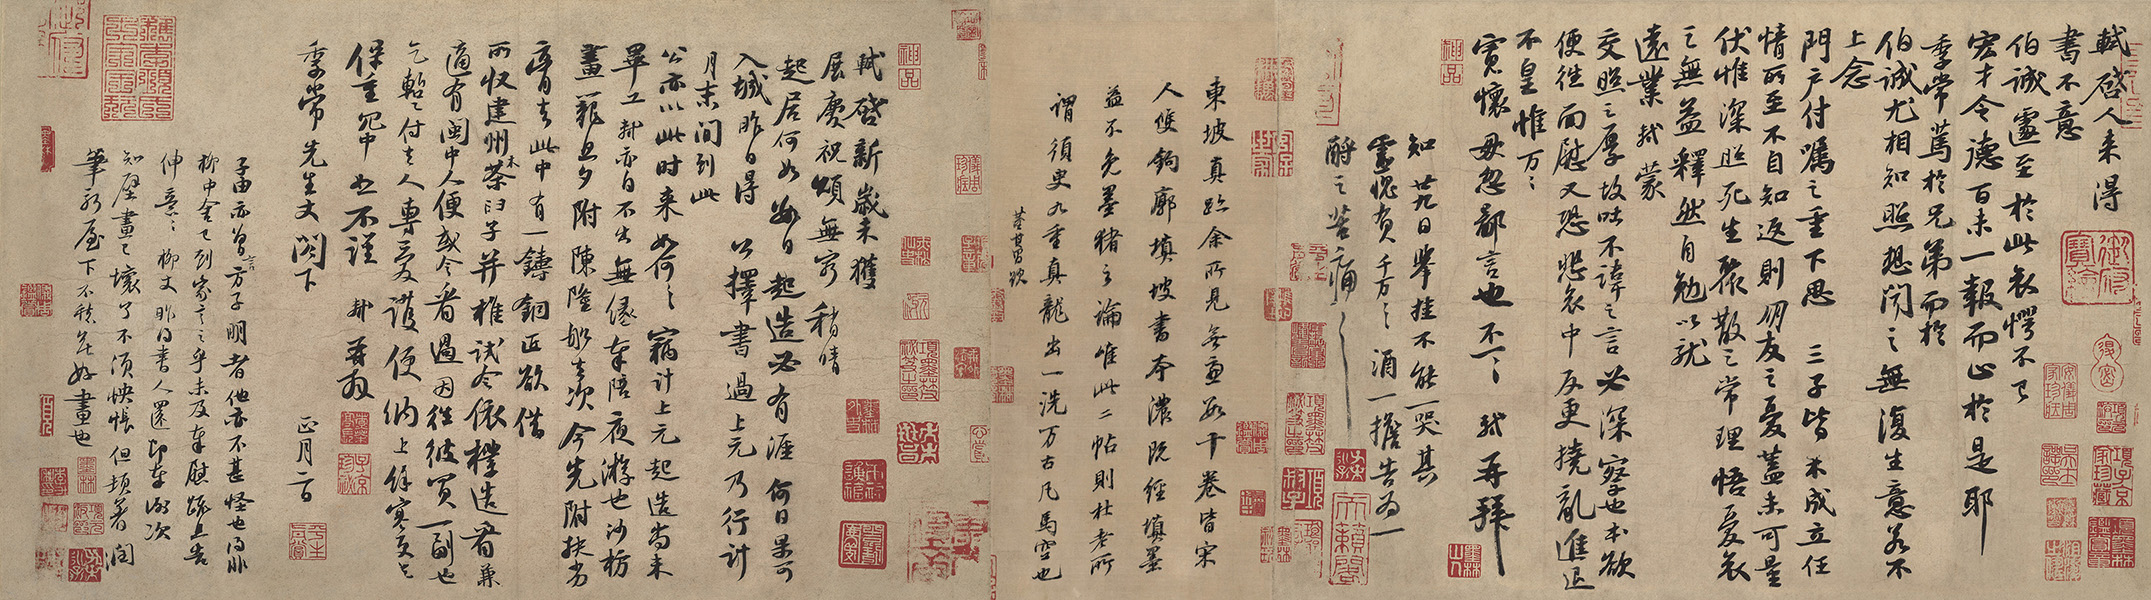 軾啓人来得
書不意
伯誠遽至於此哀愕不已
宏才令德百未一報而止於是耶
季常篤於兄弟而於
伯誠尤相知照想聞之無復生意若不
上念
門戶付囑之重下思三子皆未成立任
情所至不自知返則朋友之憂蓋未可量
伏惟深照死生聚散之常理悟憂哀
之無益釋然自勉以就
遠業軾蒙
交照之厚故吐不諱之言必深察也本欲
便往面慰又恐悲哀中反更撓亂進退
不皇惟万万
寬懷毋忽鄙言也不一一軾再拜
知廿九日舉挂不能一哭其
靈愧負千万千万酒一擔告為一
酹之苦痛苦痛
神品
東坡真跡余所見無慮數十卷皆宋
人雙鉤廓填坡書本濃既經填墨
益不免墨豬之論唯此二帖則杜老所
謂須臾九重真龍出一洗万古凡馬空也
董其昌題
神品
軾啓新歲未獲
展慶祝頌無窮稍晴
起居何如數日起造必有涯何日果可
入城昨日得公擇書過上元乃行計
月末間到此
公亦以此時来如何如何竊計上元起造尚未
畢工軾亦自不出無緣奉陪夜游也沙枋
畫籠旦夕附陳隆船去次今先附扶劣
膏去此中有一鑄銅匠欲借
所收建州木茶臼子并椎試令依樣造看兼
適有閩中人便或令看過因往彼買一副也
乞暫付去人專愛護便納上餘寒更乞
保重冗中恕不謹軾再拜
季常先生丈閣下 正月二日
子由亦曾言方子明者他亦不甚怪也得非
柳中舍已到家言之乎未及奉慰疏且告
伸意伸意柳丈昨得書人還即奉謝次
知壁畫已壞了不須怏悵但頓著潤
筆新屋下不愁無好畫也